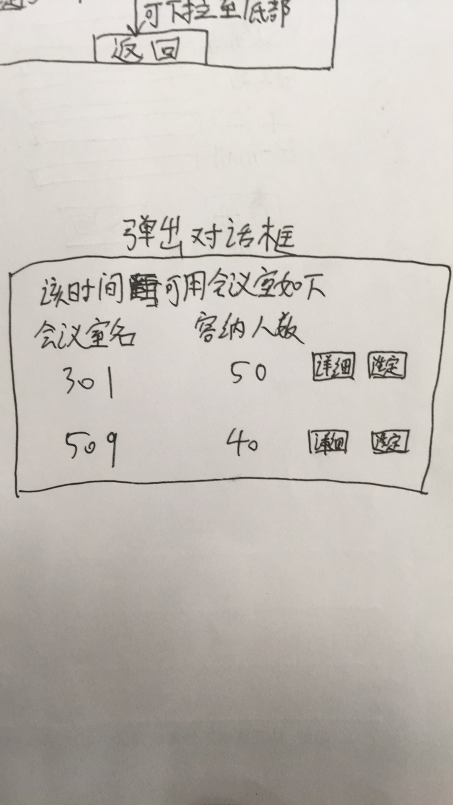 可下拉至底部
返回
弹出对话框
该时间可用会议室如下
会议室名 容纳人数
301 50 详细 选定
509 40 详细 选定